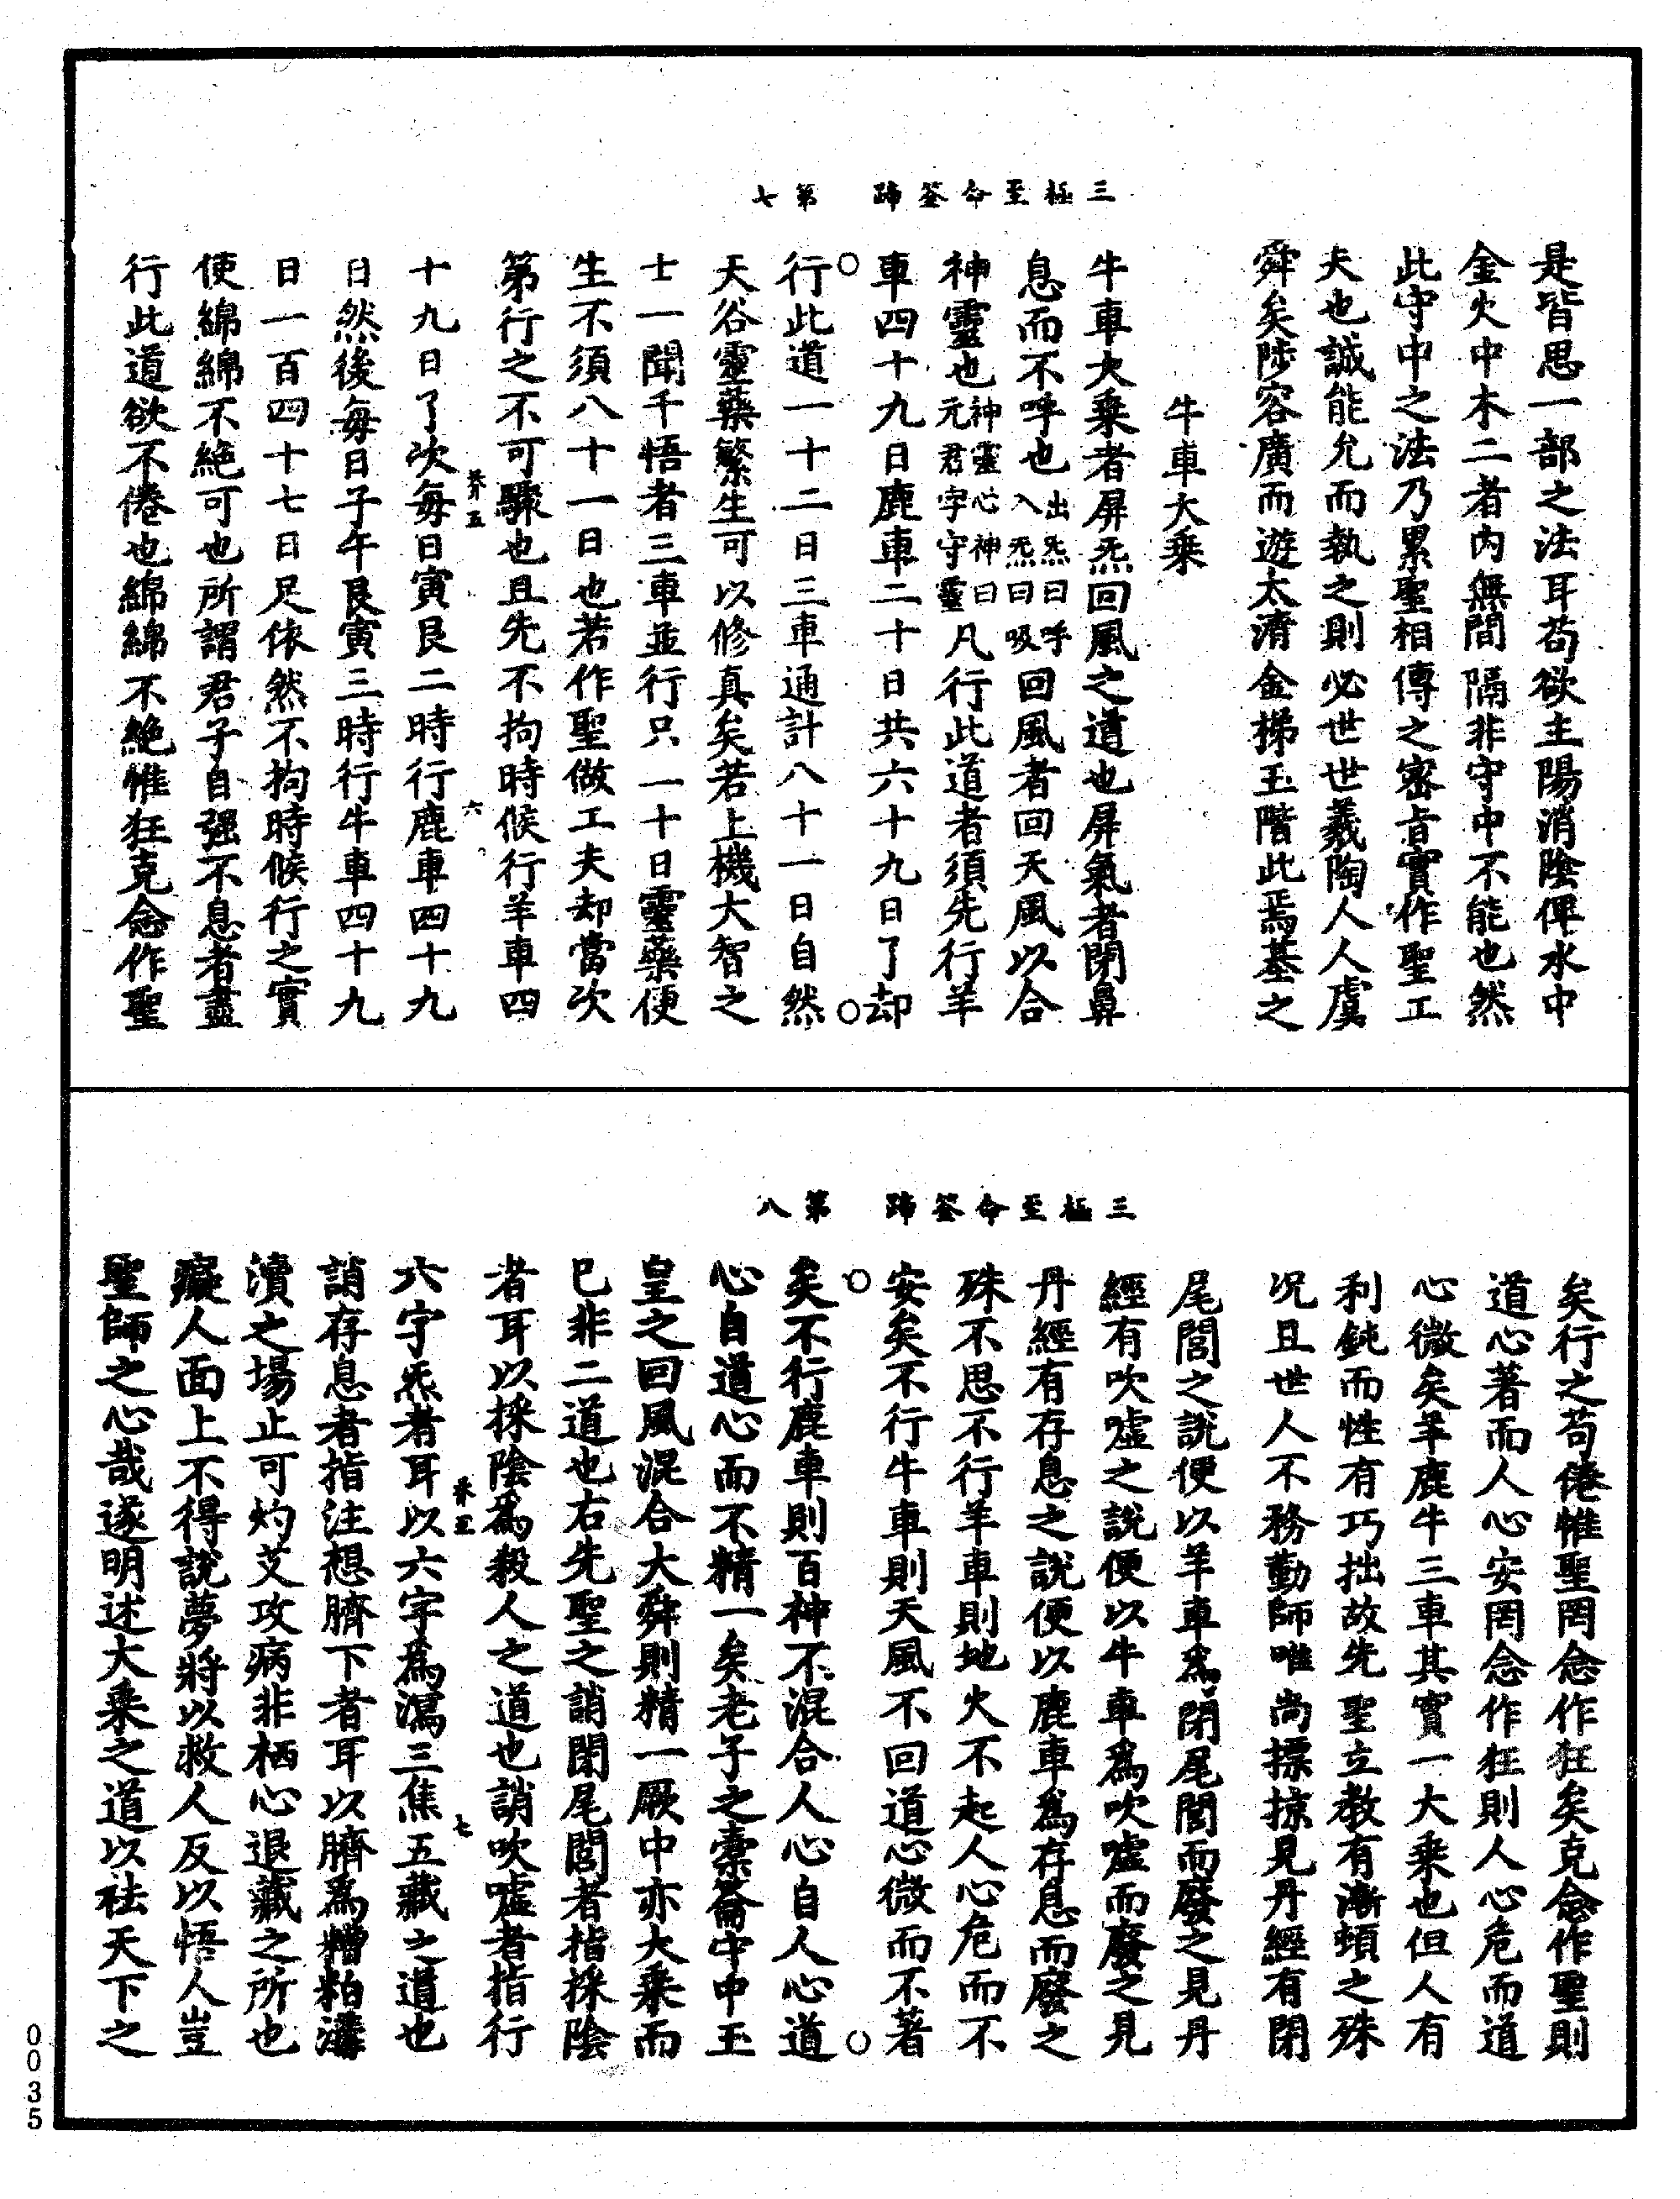 三極至命筌蹄　第七
是皆思一部之法耳苟欲主陽消陰俾水中
金火中木二者内無間隔非守中不能也然
此守中之法乃累聖相傳之密旨實作聖工
夫也誠能允而執之則必世世羲陶人人虞
舜矣陟容廣而遊太清金梯玉階此焉基之
牛車大乗
牛車大乗者屏炁回風之道也屏氣者閉鼻
息而不呼也出炁曰呼入炁曰吸回風者回天風以合
神靈也神靈心神曰元君字守靈凡行此道者須先行羊
車四十九日鹿車二十日共六十九日了却
行此道一十二日三車通計八十一日自然
天谷靈藥繁生可以修真矣若上機大智之
士一聞千悟者三車並行只一十日靈藥便
生不須八十一日也若作聖做工夫却當次
第行之不可驟也且先不拘時候行羊車四
十九日了次每日寅艮二時行鹿車四十九
日然後每日子午艮寅三時行牛車四十九
日一百四十七日足依然不拘時候行之實
使綿綿不絶可也所謂君子自强不息者盡
行此道欲不倦也綿綿不絶惟狂克念作聖
三極至命筌蹄　第八
矣行之苟倦惟聖罔念作狂矣克念作聖則
道心著而人心安罔念作狂則人心危而道
心微矣羊鹿牛三車其實一大乗也但人有
利鈍而性有巧拙故先聖立教有漸頓之殊
况且世人不務勤師唯尚摽掠見丹經有閉
尾閭之說便以羊車爲閉尾閭而廢之見丹
經有吹噓之說便以牛車爲吹噓而廢之見
丹經有存息之說便以鹿車爲存息而廢之
殊不思不行羊車則地火不起人心危而不
安矣不行牛車則天風不回道心微而不著
矣不行鹿車則百神不混合人心自人心道
心自道心而不精一矣老子之橐籥中中玉
皇之回風混合大舜則精一厥中亦大乗而
已非二道也右先聖之誚閉尾閭者指採陰
者耳以採陰爲殺人之道也誚吹噓者指行
六字炁者耳以六字爲瀉三焦五藏之道也
誚存息者指注想臍下者耳以臍爲糟粕溝
瀆之場止可灼艾攻病非栖心退藏之所也
癡人面上不得說夢將以救人反以悟人豈
聖師之心哉遂明述大乗之道以祛天下之
0035